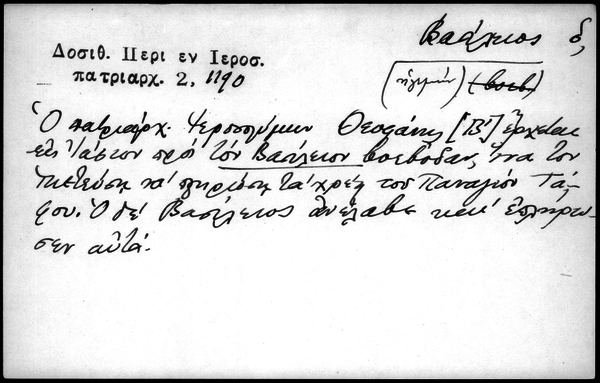 Βασίλειος ὁ
Δοσιθ. Περι εν Ιεροσ.
πατριαρχ. 2, 1190
(ἡγεμών) (βοεβ.)
Ὁ πατριάρχ. Ἱεροσολύμων Θεοφάνης [Β´] ἔρχεται
εἰς Ἰάσιον πρὸς τὸν Βασίλειον βοεβόδαν, ἵνα τὸν
ἱκετεύσῃ νὰ πληρώσῃ τὰ χρέη τοῦ Παναγίου Τά-
φου. Ὁ δὲ Βασίλειος ἀνέλαβε καὶ ἐπλήρω-
σεν αὐτά.